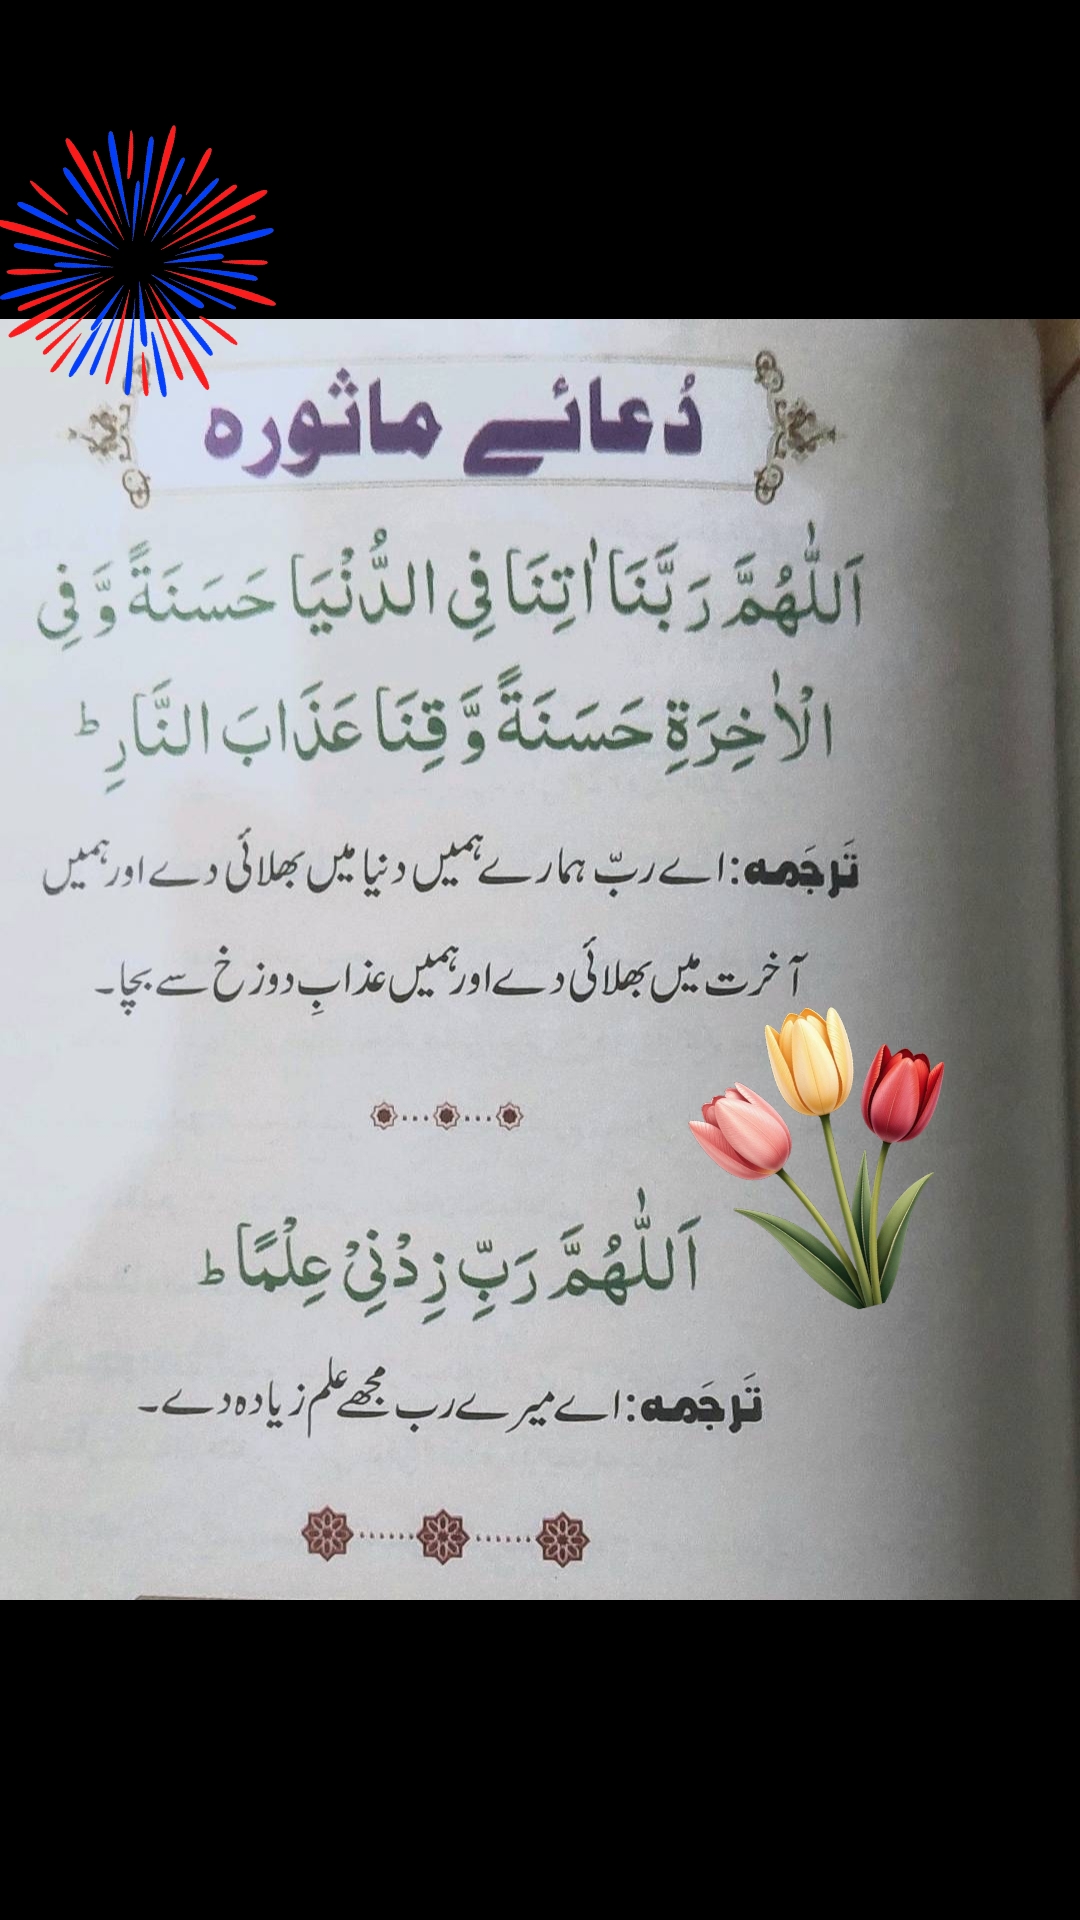 دُعائے ماثورہ
اَللّٰهُمَّ رَبَّنَا اٰتِنَا فِي الدُّنْيَا حَسَنَةً وَّ فِي
الْاٰخِرَةِ حَسَنَةً وَّ قِنَا عَذَابَ النَّارِ ؕ
تَرجَمہ: اے ربّ ہمارے ہمیں دنیا میں بھلائی دے اور ہمیں
آخرت میں بھلائی دے اور ہمیں عذابِ دوزخ سے بچا۔
اَللّٰهُمَّ رَبِّ زِدْنِيْ عِلْمًا ؕ
تَرجَمہ: اے میرے رب مجھے علم زیادہ دے۔